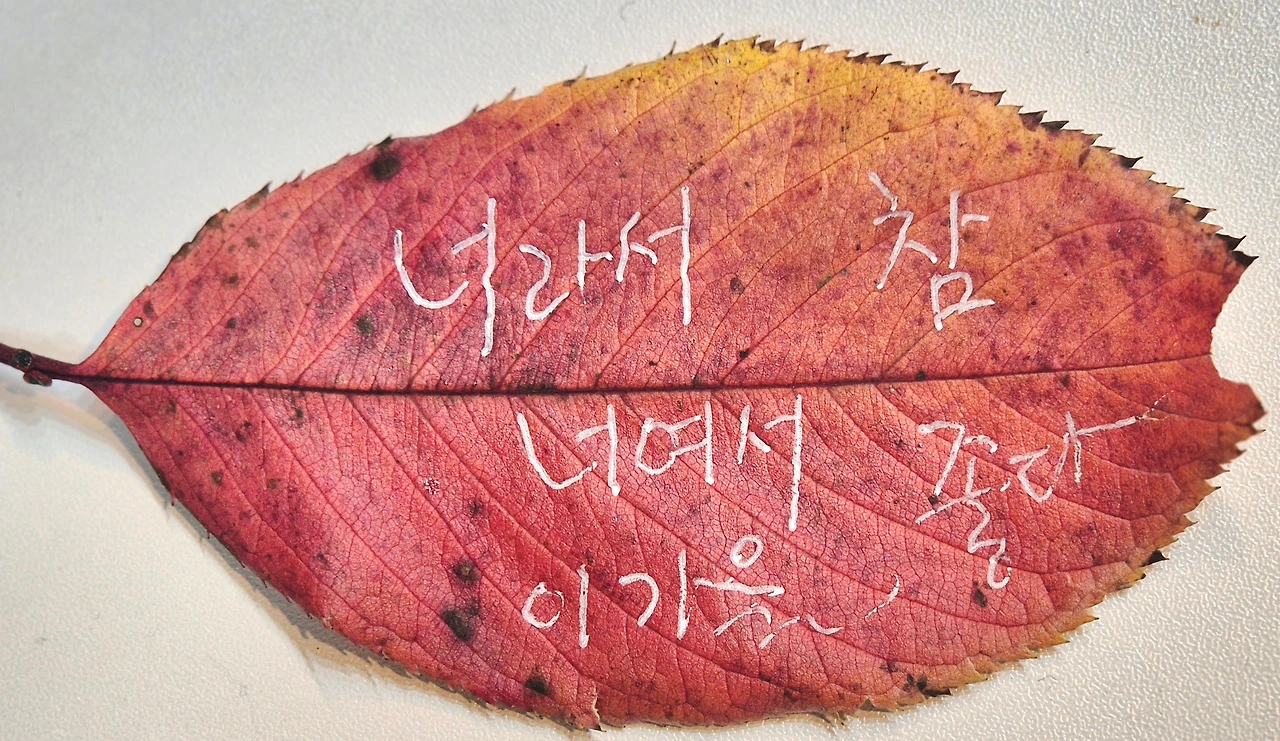 너라서 참
너여서 좋다
이 가을,